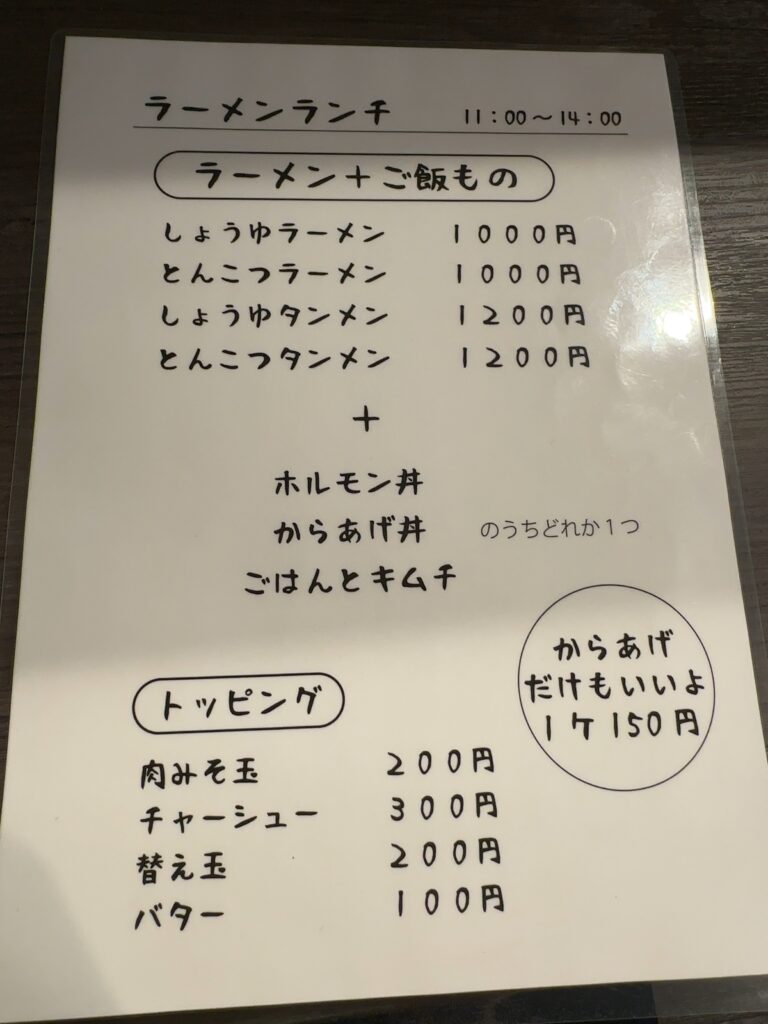 ラーメンランチ 11:00〜14:00
ラーメン+ご飯もの
しょうゆラーメン 1000円
とんこつラーメン 1000円
しょうゆタンメン 1200円
とんこつタンメン 1200円
+
ホルモン丼
からあげ丼 のうちどれか1つ
ごはんとキムチ
からあげ
だけもいいよ
1ケ150円
トッピング
肉みそ玉 200円
チャーシュー 300円
替え玉 200円
バター 100円